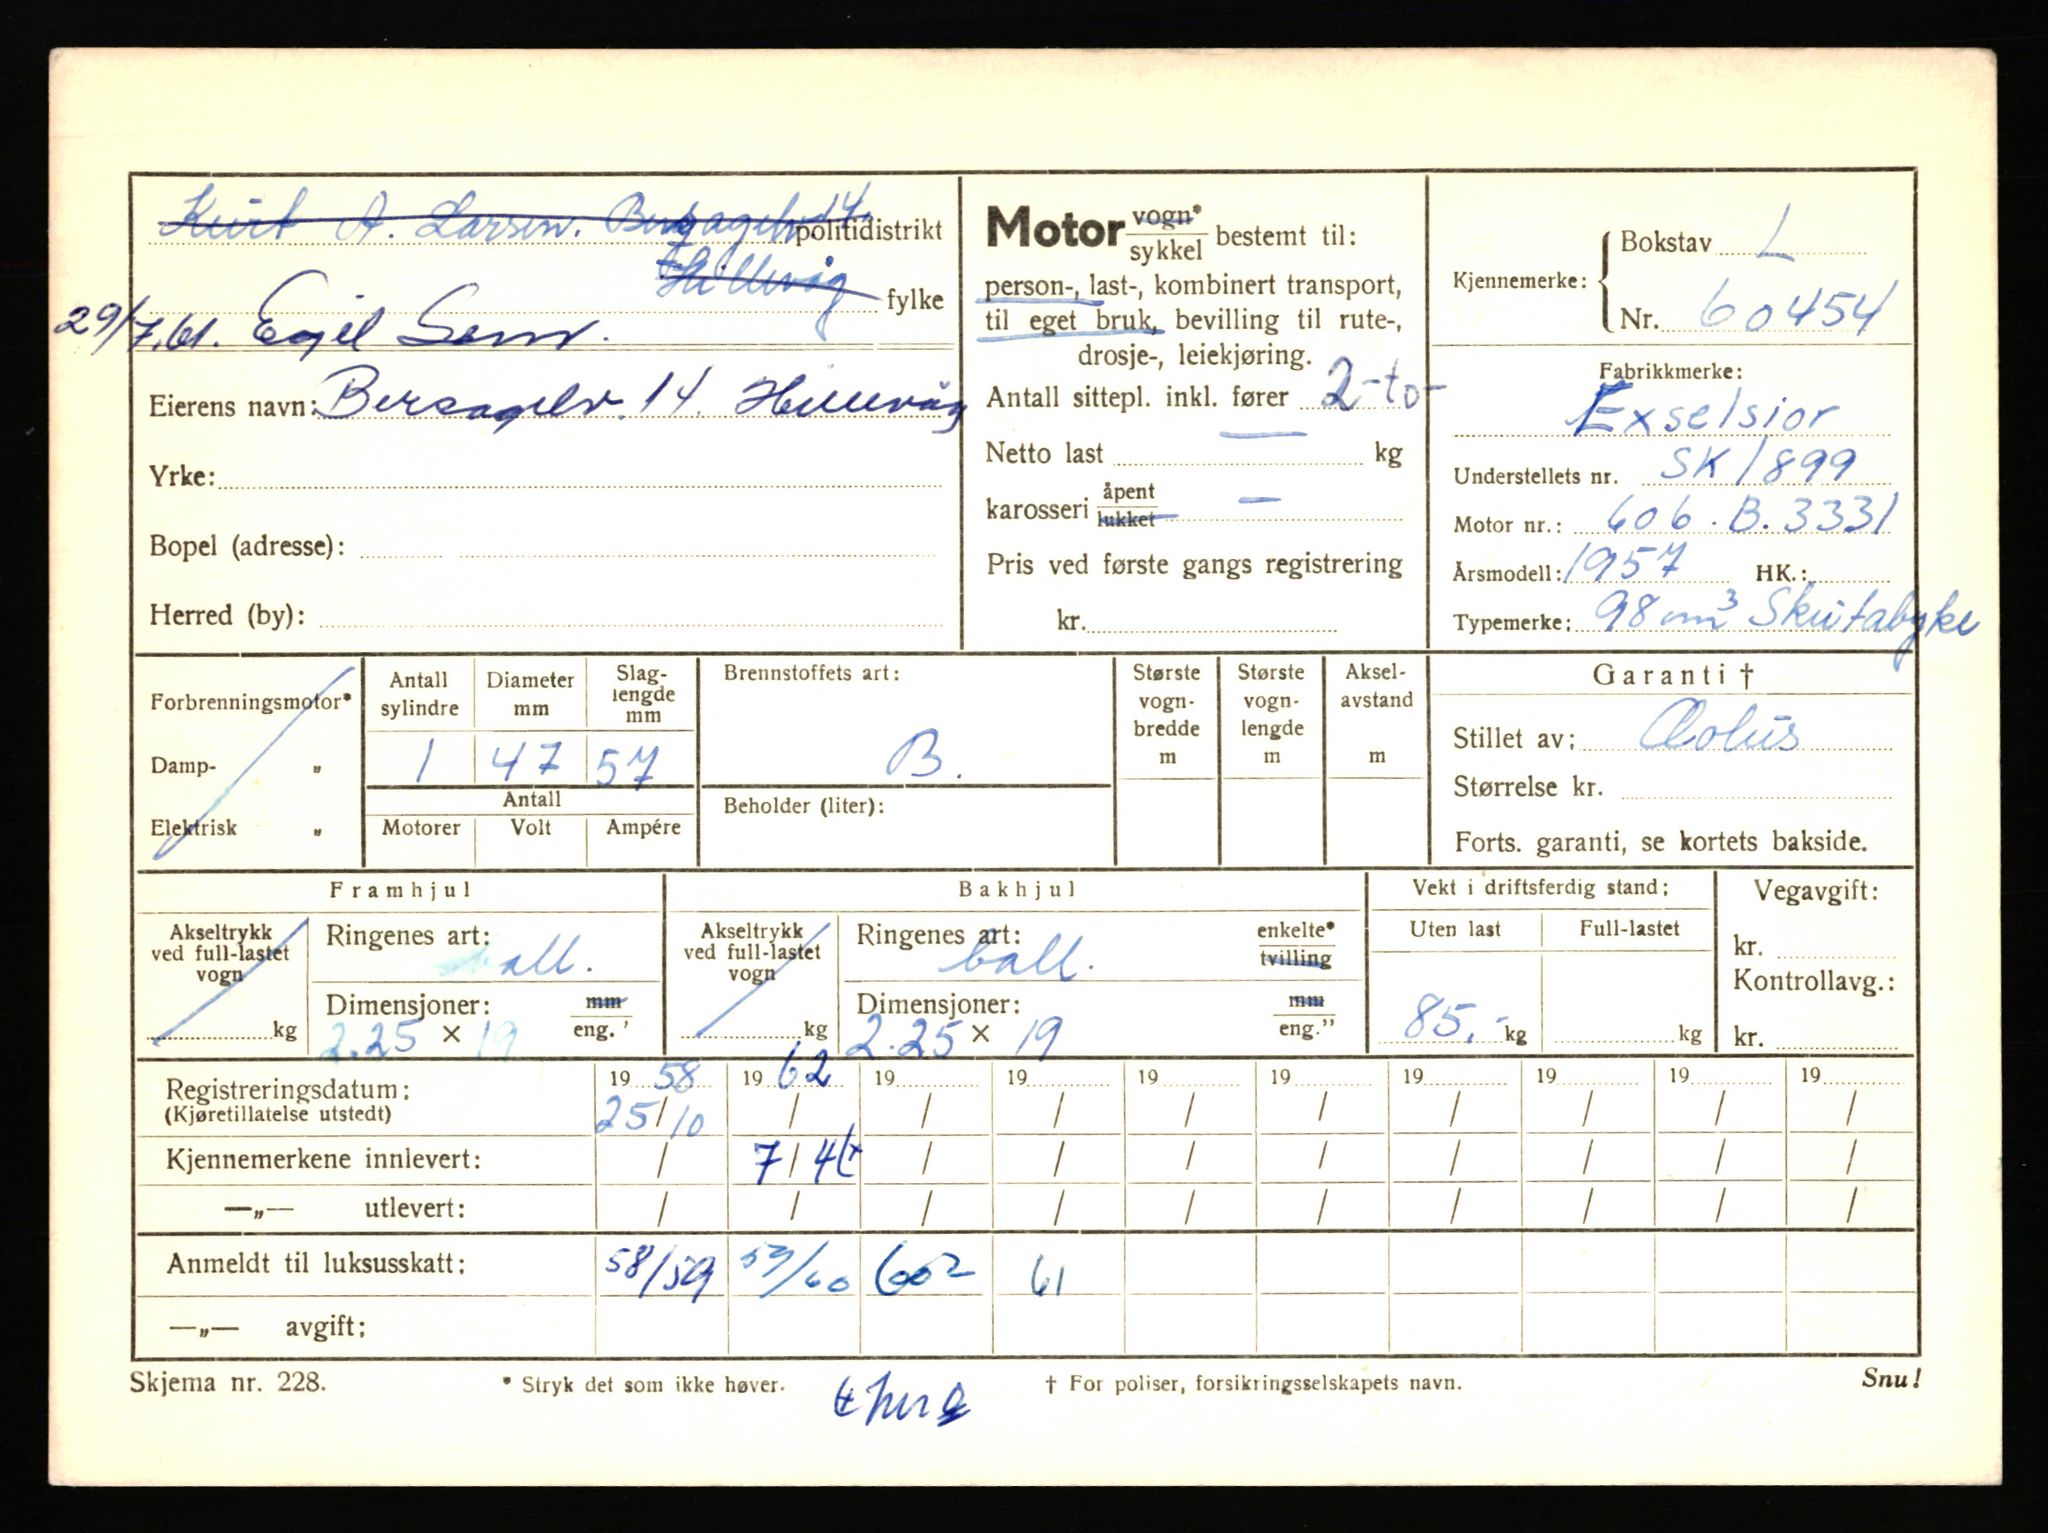 Kurt A. Larsen. Bersagelv. 14. politidistrikt
Hillevåg fylke
29/7.61. Egil Sem.
Eierens navn: Bersagelv. 14. Hillevåg
Yrke:
Bopel (adresse):
Herred (by):
Motor vogn* sykkel bestemt til:
person-, last-, kombinert transport,
til eget bruk, bevilling til rute-,
drosje-, leiekjøring.
Antall sittepl. inkl. fører 2-to-
Netto last — kg
karosseri åpent lukket —
Pris ved første gangs registrering
kr.
Kjennemerke: Bokstav L
Nr. 60454
Fabrikkmerke:
Exselsior
Understellets nr. SK/899
Motor nr.: 606.B.3331
Årsmodell: 1957 HK.:
Typemerke: 98 cm³ Skutabyke
Forbrenningsmotor*
Damp- „
Elektrisk „
Antall sylindre Diameter mm Slag-lengde mm
1 47 57
Antall
Motorer Volt Ampére
Brennstoffets art:
B.
Beholder (liter):
Største vogn-bredde m
Største vogn-lengde m
Aksel-avstand m
Garanti †
Stillet av: Æolus
Størrelse kr.
Forts. garanti, se kortets bakside.
Framhjul
Akseltrykk ved full-lastet vogn kg
Ringenes art: ball.
Dimensjoner: mm eng.'
2.25 × 19
Bakhjul
Akseltrykk ved full-lastet vogn kg
Ringenes art: ball. enkelte* tvilling
Dimensjoner: mm eng."
2.25 × 19
Vekt i driftsferdig stand:
Uten last Full-lastet
85.- kg kg
Vegavgift:
kr.
Kontrollavg.:
kr.
Registreringsdatum: 19 58 19 62 19 19 19 19 19 19 19 19
(Kjøretillatelse utstedt) 25/10 / / / / / / / / /
Kjennemerkene innlevert: / 7/4 / / / / / / / /
—„— utlevert: / / / / / / / / / /
Anmeldt til luksusskatt: 58/59 59/60 60² 61
—„— avgift:
Skjema nr. 228. * Stryk det som ikke høver. † For poliser, forsikringsselskapets navn. Snu!